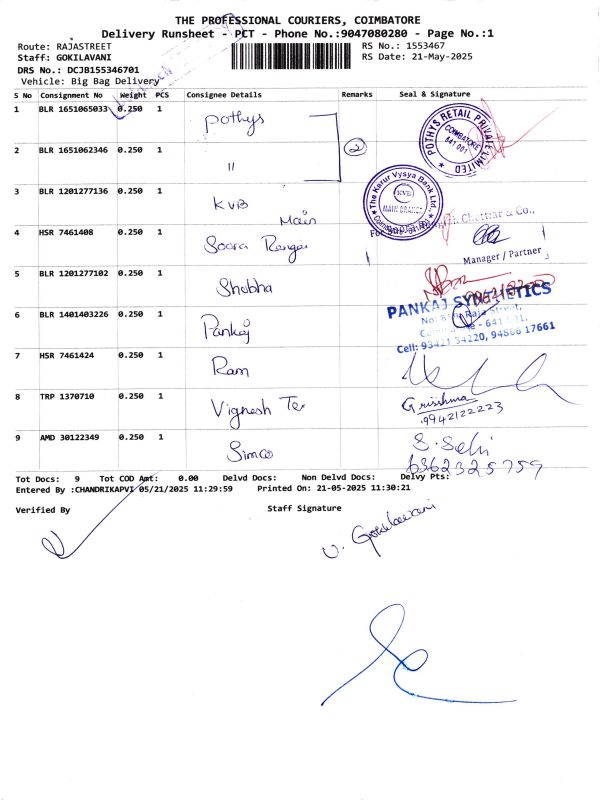 THE PROFESSIONAL COURIERS, COIMBATORE
Delivery Runsheet - PCT - Phone No.:9047080280 - Page No.:1
Route: RAJASTREET
RS No.: 1553467
Staff: GOKILAVANI
RS Date: 21-May-2025
DRS No.: DCJB155346701
Vehicle: Big Bag Delivery
S No Consignment No Weight PCS Consignee Details Remarks Seal & Signature
1 BLR 1651065033 0.250 1 Pothys
POTHYS RETAIL PRIVATE LIMITED
COIMBATORE
641 001
2 BLR 1651062346 0.250 1 11 2
3 BLR 1201277136 0.250 1 KVB Main
The Karur Vysya Bank Ltd.,
KVB
MAIN BRANCH
4 HSR 7461408 0.250 1 Soora Rengar
Chettiar & Co.,
Manager / Partner
5 BLR 1201277102 0.250 1 Shobha
6 BLR 1401403226 0.250 1 Pankaj
PANKAJ SYNTHETICS
Raja Street,
- 641 001.
Cell: 93421 54220, 94866 17661
7 HSR 7461424 0.250 1 Ram
8 TRP 1370710 0.250 1 Vignesh Tex
Grisshma
9942122223
9 AMD 30122349 0.250 1 Simco
S. Selvi
6362325759
Tot Docs: 9 Tot COD Amt: 0.00 Delvd Docs: Non Delvd Docs: Delvy Pts:
Entered By :CHANDRIKAPVI 05/21/2025 11:29:59 Printed On: 21-05-2025 11:30:21
Verified By Staff Signature
V. Gokilavani